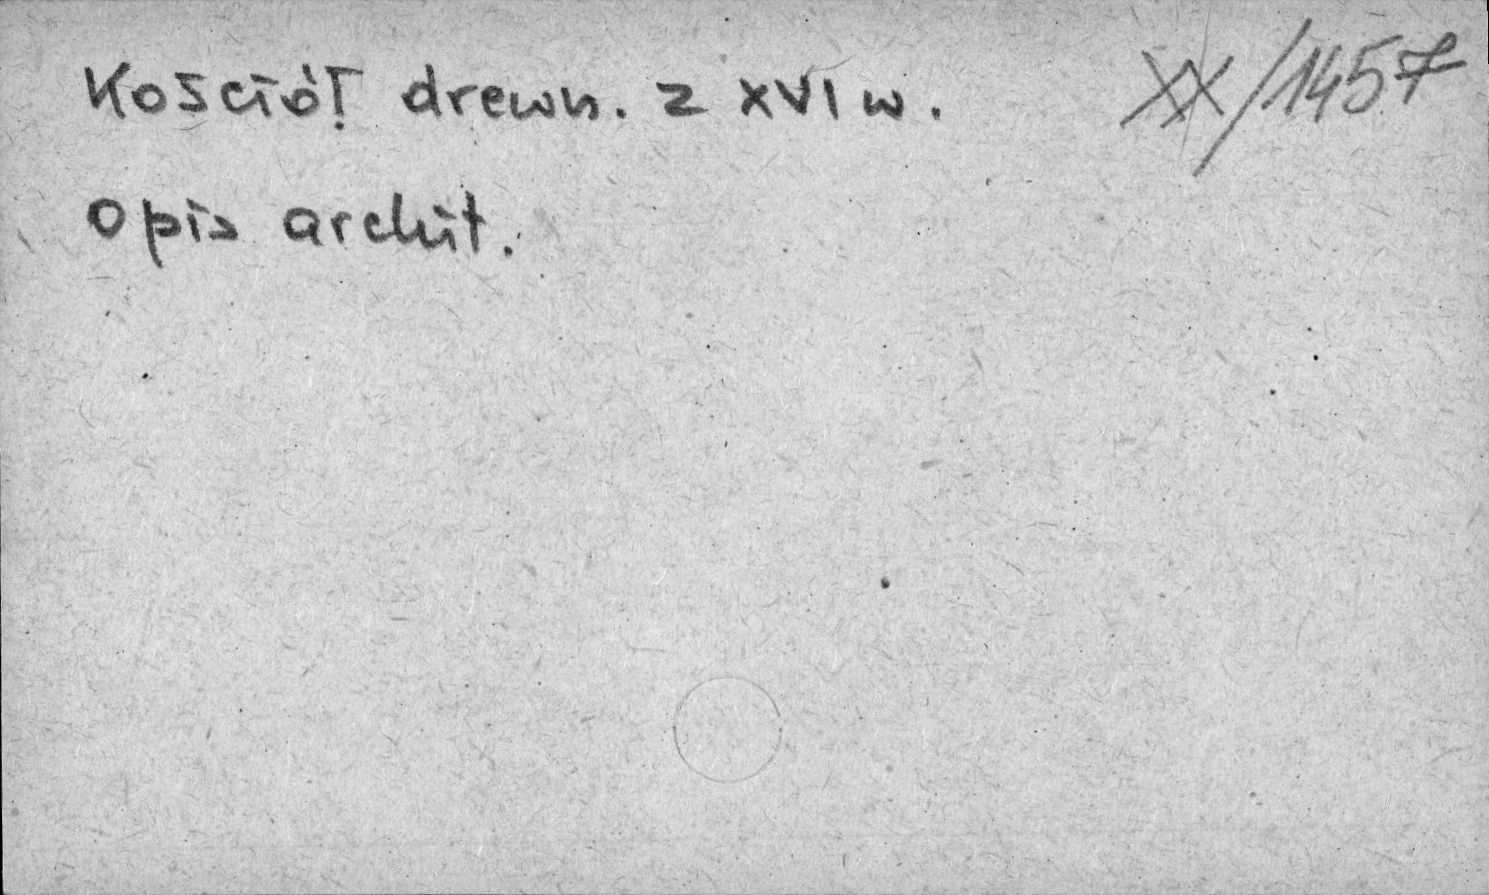 Kościół drewn. z XVI w. XX/1457
Opis archit.